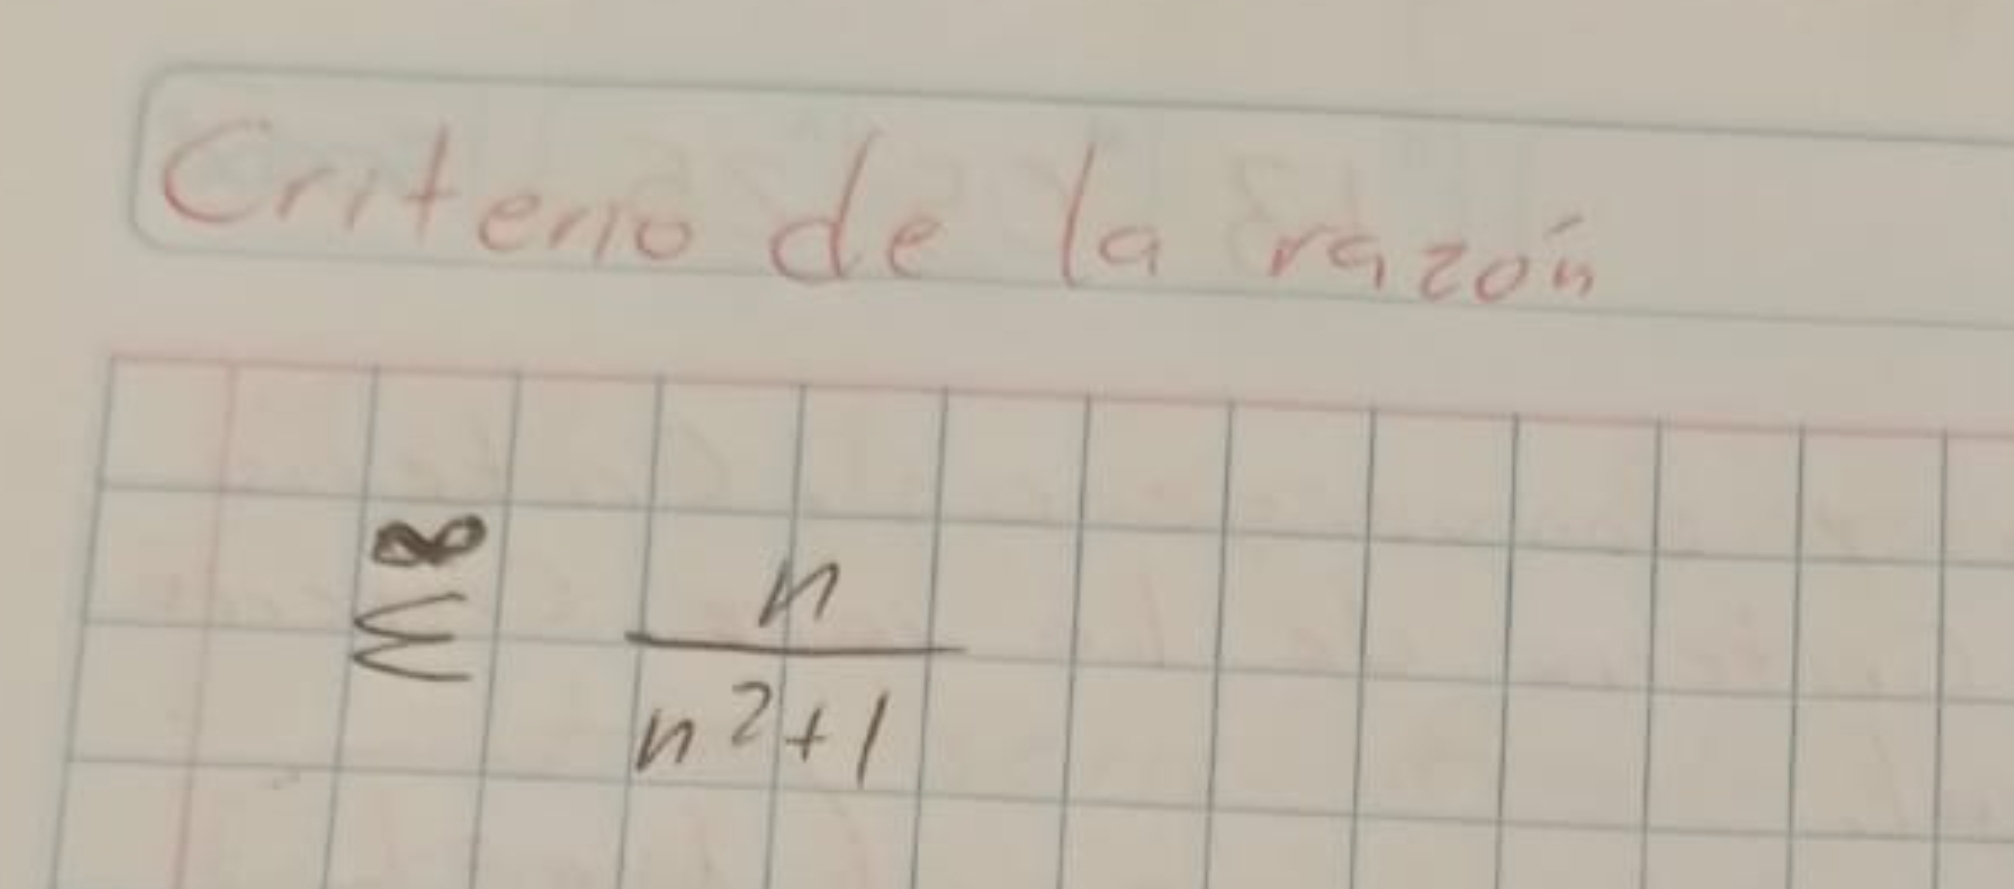 Criterio de la razón
∞
Σ n
n²+1